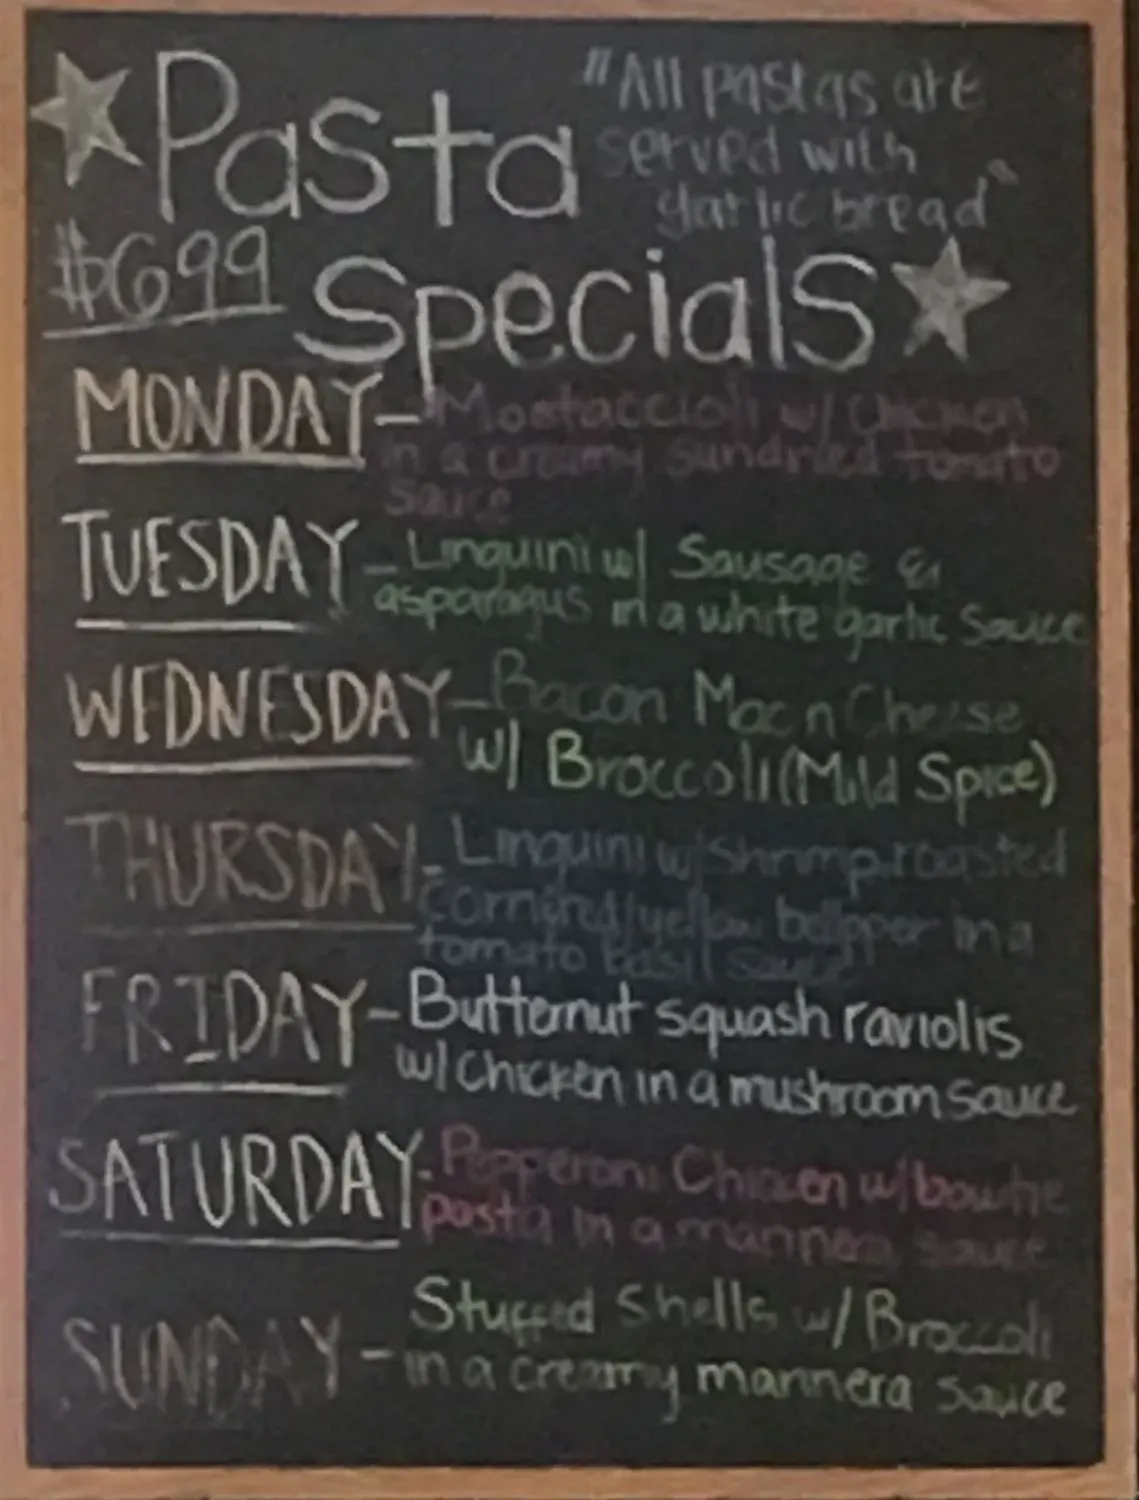 Pasta
"All pastas are
served with
garlic bread"
$6.99
Specials
MONDAY- Mostaccioli w/ chicken
in a creamy sundried tomato
sauce
TUESDAY- Linguini w/ Sausage &
asparagus in a white garlic sauce
WEDNESDAY- Bacon Mac n Cheese
w/ Broccoli (Mild Spice)
THURSDAY- Linguini w/ shrimp, roasted
corn, red/yellow in a
tomato basil sauce
FRIDAY- Butternut squash raviolis
w/ chicken in a mushroom sauce
SATURDAY- Pepperoni Chicken w/ bowtie
pasta in a marinera sauce
SUNDAY- Stuffed Shells w/ Broccoli
in a creamy marinera sauce